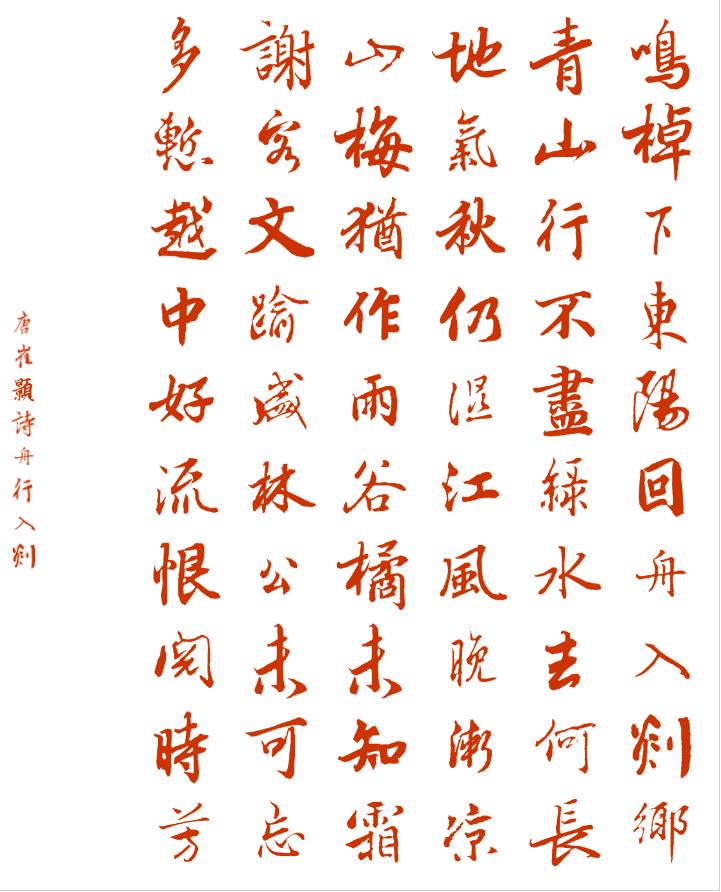 鳴棹下東陽回舟入剡鄉
青山行不盡綠水去何長
地氣秋仍濕江風晚漸涼
山梅猶作雨谷橘未知霜
謝客文踰盛林公未可忘
多慙越中好流恨閱時芳
唐崔顥詩舟行入剡